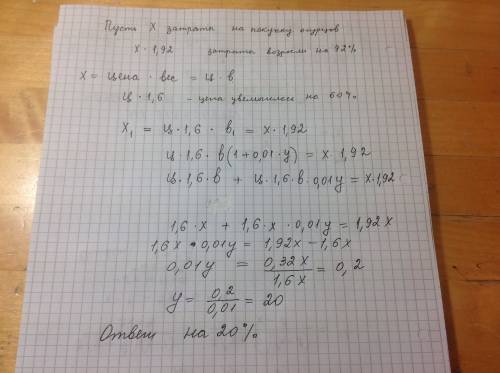 Пусть X затраты на покупку огурцов
X · 1,92 затраты возросли на 92%
X = цена · вес = Ц · в
Ц · 1,6 - цена увеличилась на 60%
X₁ = Ц · 1,6 · в₁ = X · 1,92
Ц · 1,6 · в(1 + 0,01 · y) = X · 1,92
Ц · 1,6 · в + Ц · 1,6 · в · 0,01y = X · 1,92
1,6 · X + 1,6 · X · 0,01y = 1,92X
1,6X · 0,01y = 1,92X - 1,6X
0,01y = 0,32X / 1,6X = 0,2
y = 0,2 / 0,01 = 20
Ответ на 20%